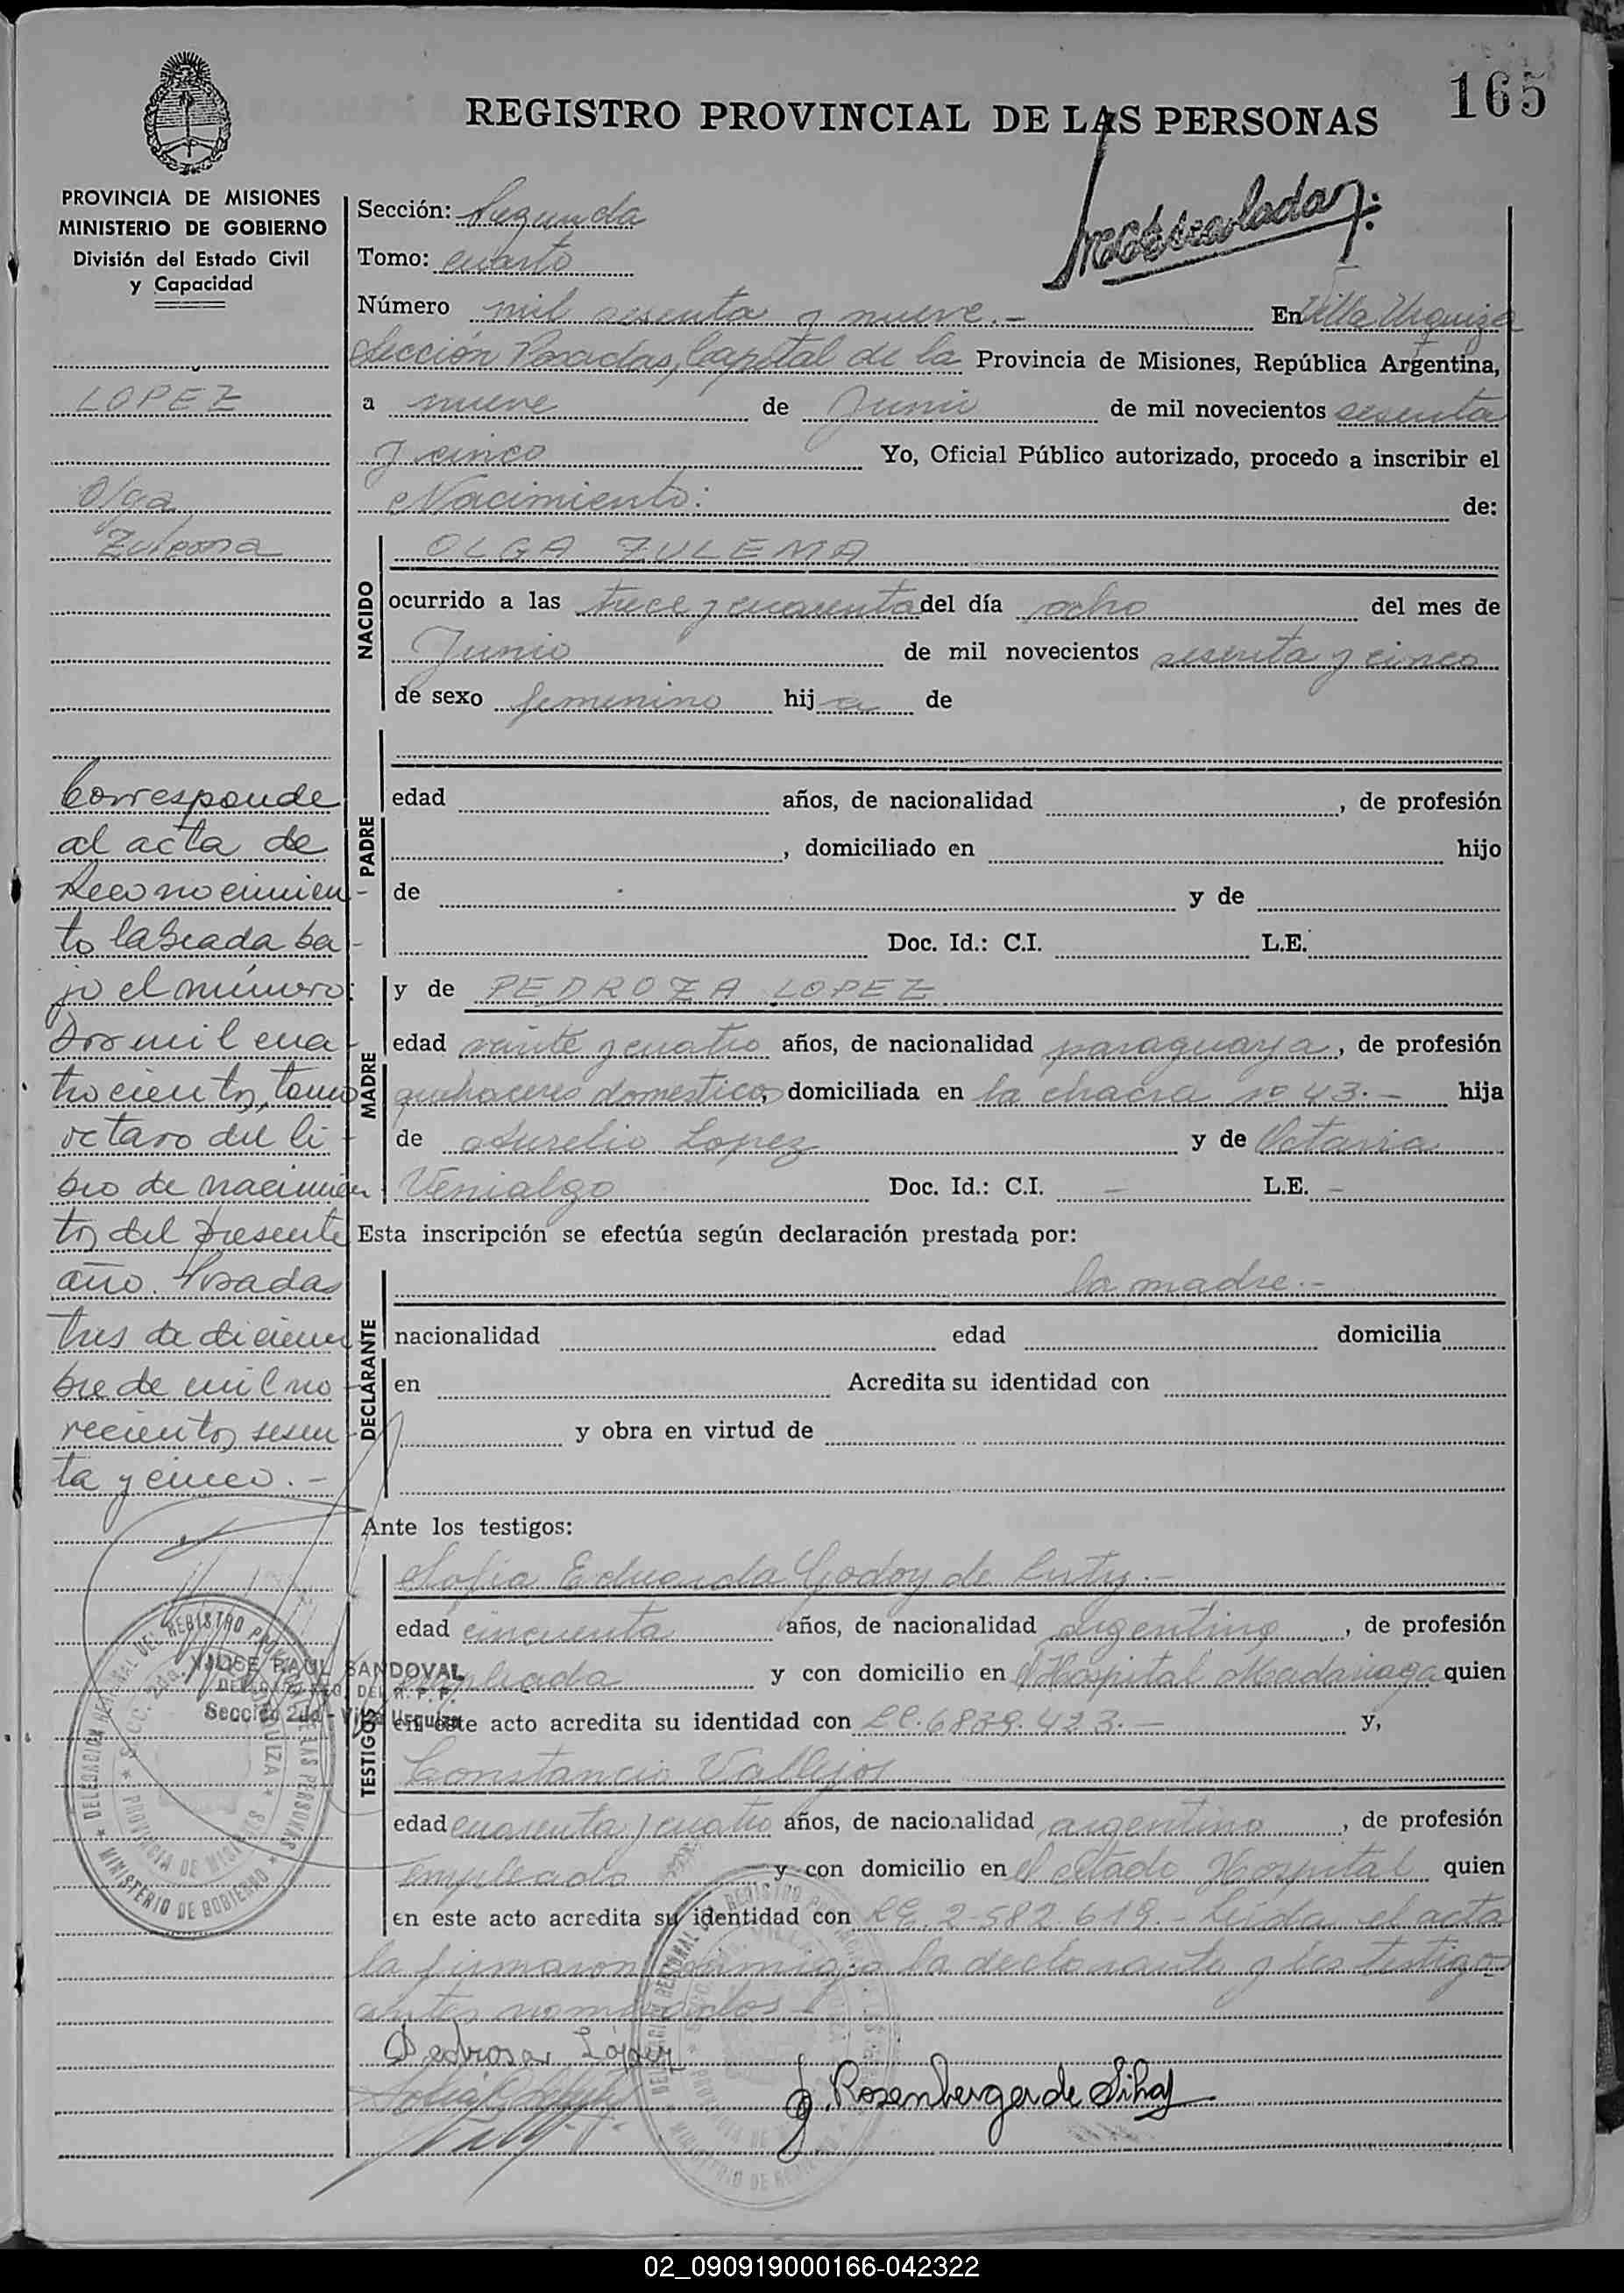 165
REGISTRO PROVINCIAL DE LAS PERSONAS
PROVINCIA DE MISIONES
MINISTERIO DE GOBIERNO
División del Estado Civil
y Capacidad
LOPEZ
Olga
Zulema
Corresponde
al acta de
Reconocimien-
to labrada ba-
jo el número:
Dos mil cua-
trocientos, tomo
octavo del li-
bro de nacimien
tos del presente
año. Posadas
tres de diciem
bre de mil no-
vecientos sesen-
ta y cinco.-
Sección: Segunda
Tomo: cuarto
Número mil sesenta y nueve.- En Villa Urquiza
Sección Posadas, Capital de la Provincia de Misiones, República Argentina,
a nueve de Junio de mil novecientos sesenta
y cinco Yo, Oficial Público autorizado, procedo a inscribir el
Nacimiento: de:
NACIDO
OLGA ZULEMA
ocurrido a las trece y cuarenta del día ocho del mes de
Junio de mil novecientos sesenta y cinco
de sexo femenino hija de
PADRE
edad años, de nacionalidad , de profesión
, domiciliado en hijo
de y de
Doc. Id.: C.I. L.E.
MADRE
y de PEDROZA LOPEZ
edad veinte y cuatro años, de nacionalidad paraguaya, de profesión
quehaceres domesticos, domiciliada en la chacra nº 43.- hija
de Aurelio Lopez y de Octavia
Venialgo Doc. Id.: C.I. - L.E. -
Esta inscripción se efectúa según declaración prestada por:
DECLARANTE
la madre.-
nacionalidad edad domicilia
en Acredita su identidad con
y obra en virtud de
Ante los testigos:
TESTIGOS
Sofia Eduarda Godoy de
edad cincuenta años, de nacionalidad argentina, de profesión
empleada y con domicilio en el Hospital Madariaga quien
en este acto acredita su identidad con LC. 6839.423.- y,
Constancio Vallejos
edad cuarenta y cuatro años, de nacionalidad argentino, de profesión
empleado y con domicilio en el citado Hospital quien
en este acto acredita su identidad con LE. 2-582.619.- Leída el acta
la firmaron conmigo la declarante y los testigos
antes nombrados.-
Pedrosa López
J. Rosenberger de Silva
RAUL SANDOVAL
Sección 2da - Villa Urquiza
DELEGACION REGIONAL DEL REGISTRO PROVINCIAL DE LAS PERSONAS
MINISTERIO DE GOBIERNO
PROVINCIA DE MISIONES
02_090919000166-042322